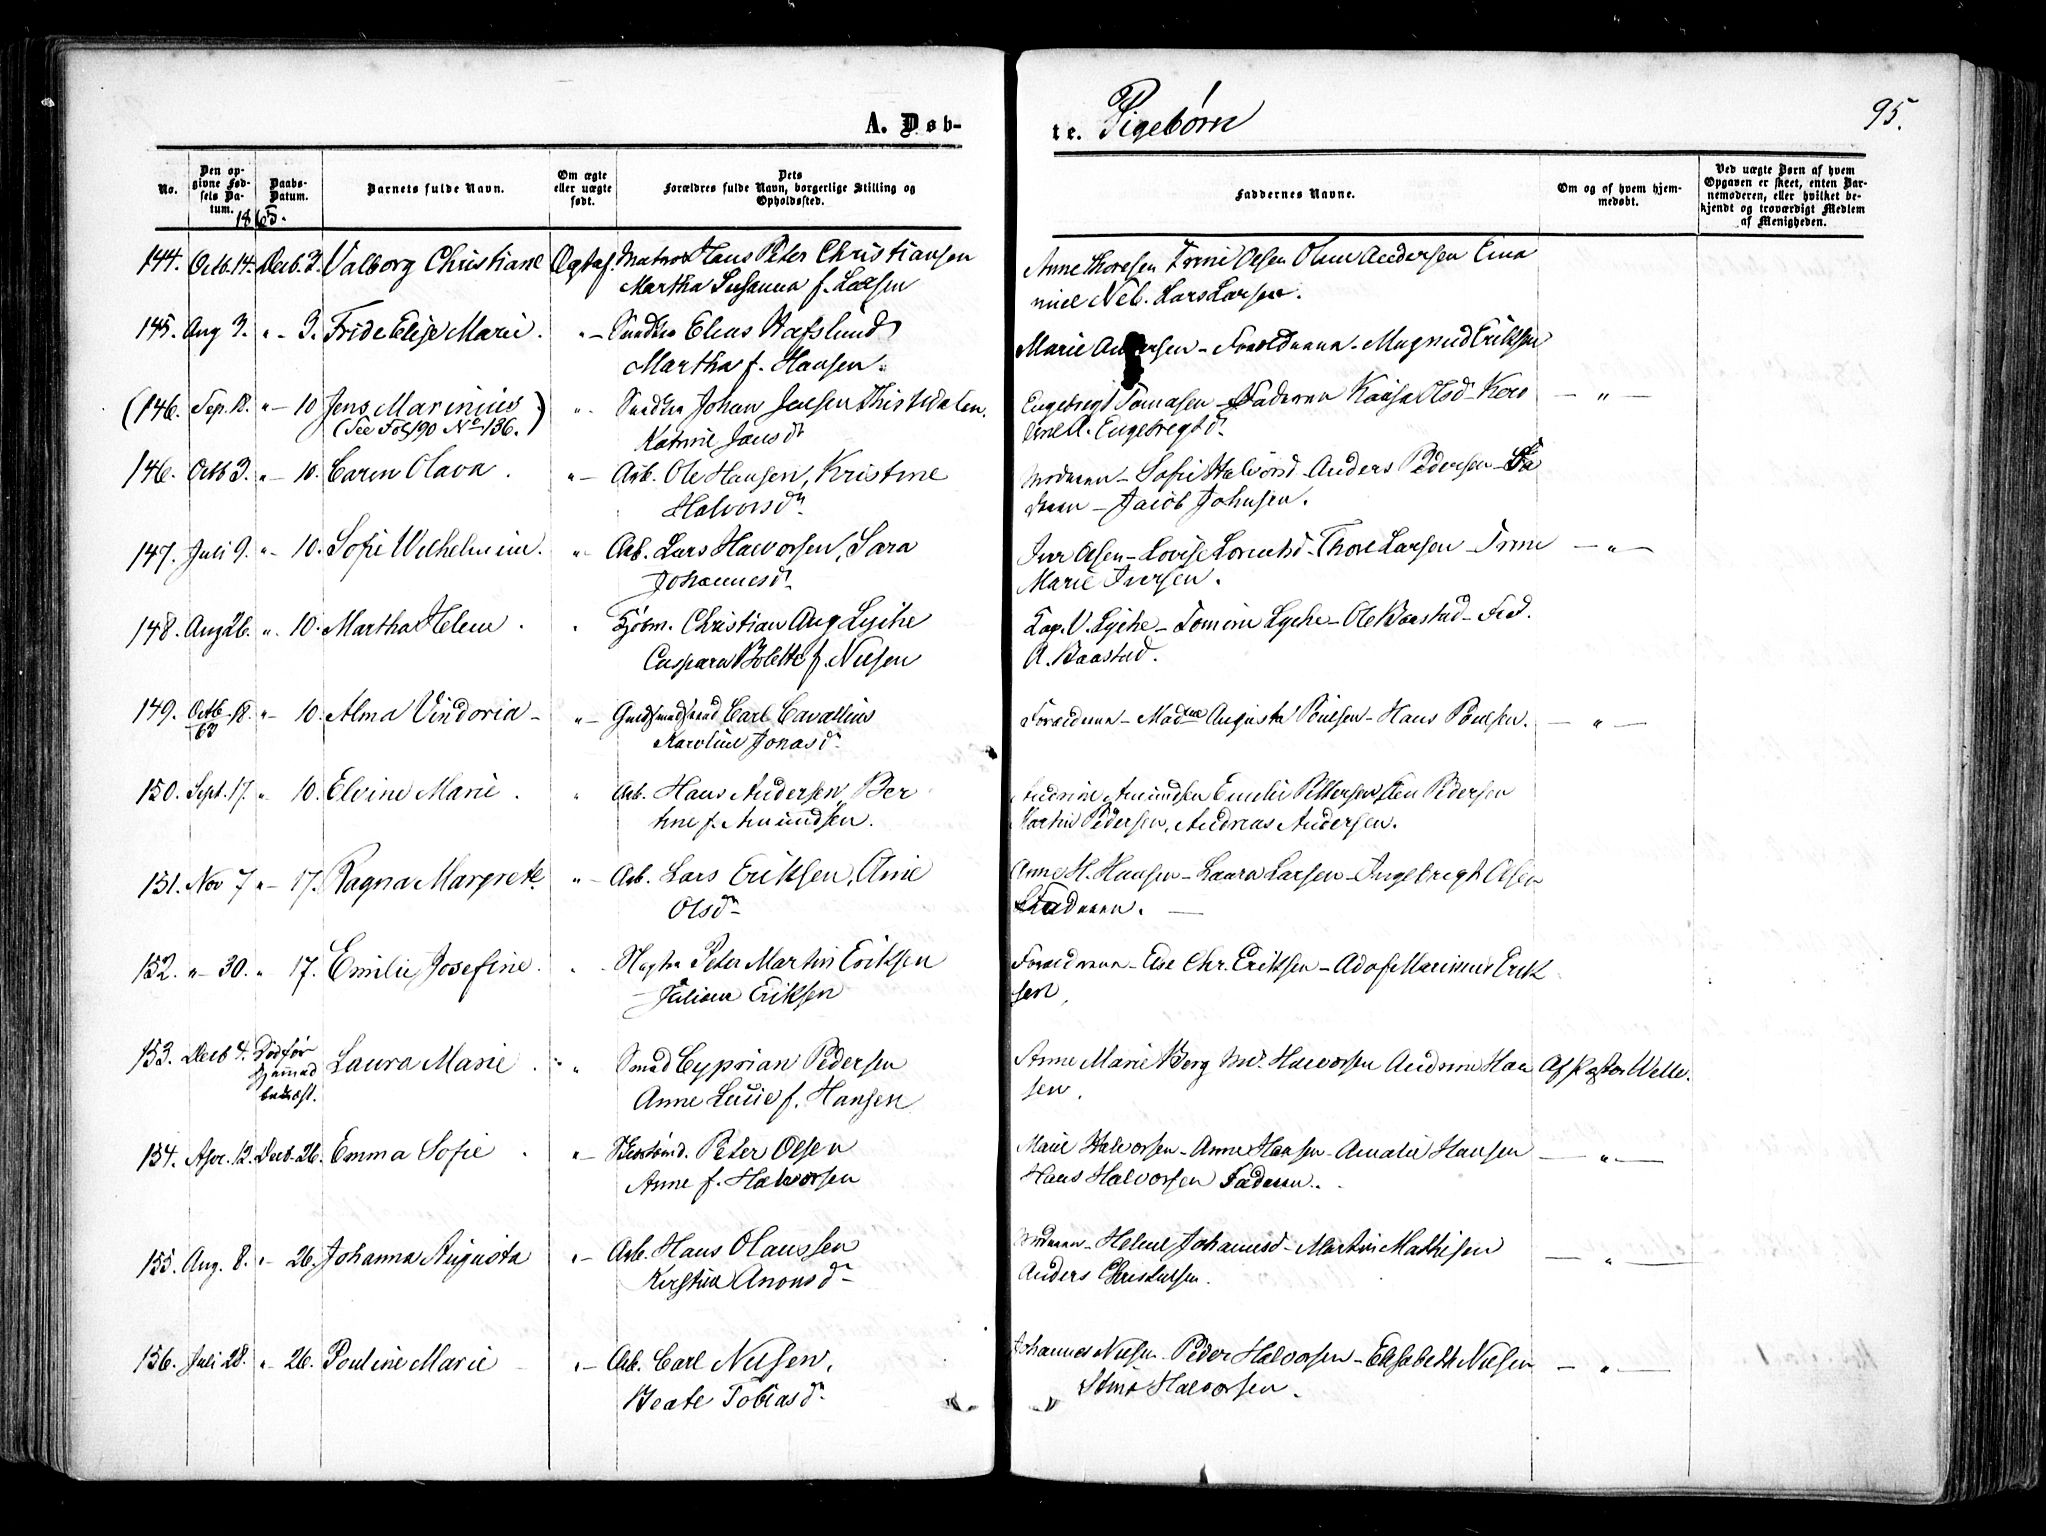 A. Døb-
te. Pigebørn
95.
No.
Den opgivne Fødsels Datum.
Daabs-Datum.
1865.
Barnets fulde Navn.
Om ægte eller uægte født.
Dets Forældres fulde Navn, borgerlige Stilling og Opholdssted.
Faddernes Navne.
Om og af hvem hjemmedøbt.
Ved uægte Børn af hvem Opgaven er skeet, enten Barnemoderen, eller hvilket bekjendt og troværdigt Medlem af Menigheden.
144. Octb. 14. Decb. 3. Valborg Christiane Ægtef. Matros Hans Peter Christiansen
Martha Susanna f. Larsen
Anne Thoresen Olsen Andersen
Lars Larsen.
145. Aug 3. " - 3. Marie . " - Elias Hafslund
Martha f. Hansen.
Marie Andersen - Eriksen
(146. Sep. 18. " - 10 Jens Marinius .) " . Johan Jensen Thistedalen.
(See Fol 90 No 136.)
Katrine Jansdr
Engebregt Tomasen - Faderen Olsd -
A. Engebregtsd. - " -
146. Octb 3. " - 10. Caren Olava . " - Arb. Ole Hansen, Kristine
Halvorsdr
Moderen - Sofie Halvorsd - Anders Pedersen - Fa
deren - Jacob Johnsen.
147. Juli 9. " - 10. Sofie Wilhelmine. " - Arb. Lars Halvorsen, Sara
Johannesdr
Iver Olsen - Lovise Lorentsd - Thore Larsen - Trine
Marie Iversen. - " -
148. Aug 26. " . 10. Martha Helene . Kjøbm. Christian Aug Lyche
Caspara Bolette f. Nilsen
Cap. V. Lyche - Tomine Lyche - Ole Baastad - Fred.
A. Baastad.
149. Octb 18. " - 10. Alma Vindoria - " - Carl Cavallius
63
Karoline Jonasdr
Forældrene - Augusta Poulsen - Hans Poulsen. - " -
150. Sept. 17. " 10. Elvine Marie . " Arb. Hans Andersen, Ber
tine f. Amundsen.
Andrine Amundsen Emelie Pettersen Pedersen
Martin Pedersen, Andreas Andersen.
151. Nov 7 " - 17. Ragna Margrete. " - Arb. Lars Eriksen, Anne
Olsdr -
Anne H. Hansen - Laura Larsen - Ingebregt Olsen
Faderen. -
152. " - 30. " 17. Emilie Josefine . " . Peter Martin Eriksen
Juliane Eriksen
Forældrene - Else Chr. Eriksen - Adof Marinius Erik
sen.
153. Decb 4. Død før Laura Marie . " Smed Cyprian Pedersen
bekræft.
Anne Lucie f. Hansen
Anne Marie Berg Halvorsen Andrine Han Af Pastor Welle.
sen.
154. Apr. 12. Decb. 26. Emma Sofie . " - Peter Olsen
Anne f. Halvorsen
Halvorsen - Anne Hansen - Amalie Hansen
Hans Halvorsen Faderen. - " -
155. Aug. 8. " - 26. Johanna Augusta " - Arb. Hans Olaussen
Kirstine Aronsdr -
Moderen - Helene Johannesd - Martin Mathisen
Anders Christensen. - " -
156. Juli 28. " - 26. Pouline Marie - " - Arb. Carl Nilsen,
Beate Tobiasdr
Johannes Nilsen - Peder Halvorsen - Elisabeth Nilsen
Halvorsen. - " -